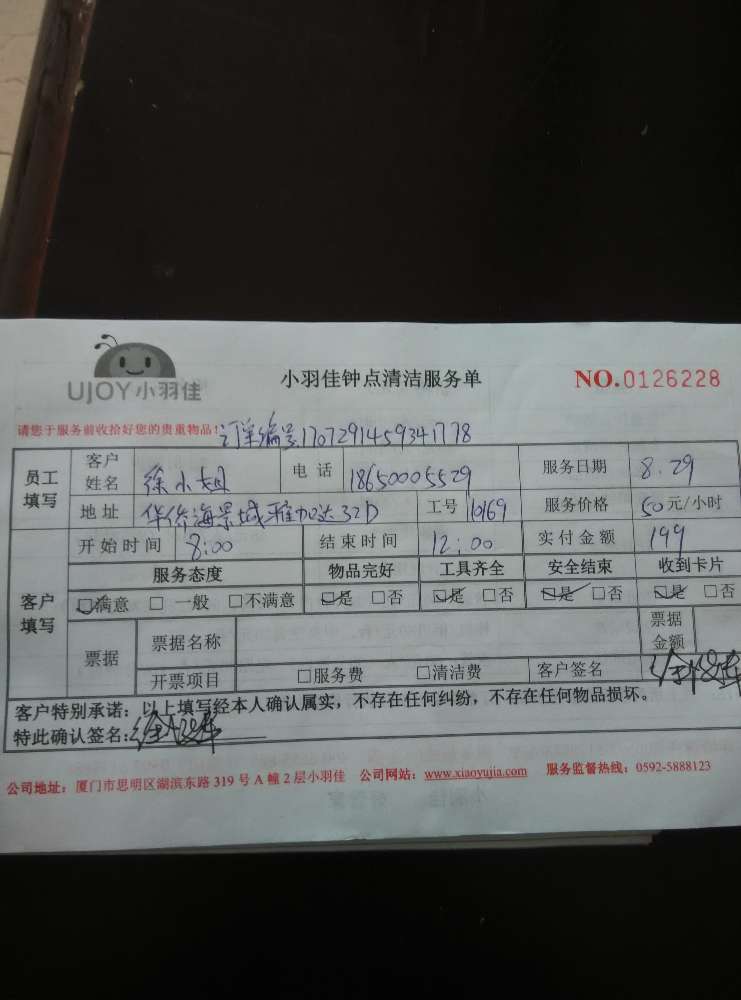 UJOY小羽佳
小羽佳钟点清洁服务单
NO.0126228
请您于服务前收拾好您的贵重物品!
订单编号17072914593417 78
员工填写 客户姓名 徐小姐 电话 18650005529 服务日期 8.29
地址 华侨海景城雅加达32D 工号 10169 服务价格 50元/小时
客户填写 开始时间 8:00 结束时间 12:00 实付金额 199
服务态度 物品完好 工具齐全 安全结束 收到卡片
☑满意 □一般 □不满意 ☑是 □否 ☑是 □否 ☑是 □否 ☑是 □否
票据 票据名称 票据金额
开票项目 □服务费 □清洁费 客户签名
客户特别承诺：以上填写经本人确认属实，不存在任何纠纷，不存在任何物品损坏。
特此确认签名:
公司地址：厦门市思明区湖滨东路 319 号 A 幢 2 层小羽佳 公司网站：www.xiaoyujia.com 服务监督热线：0592-5888123